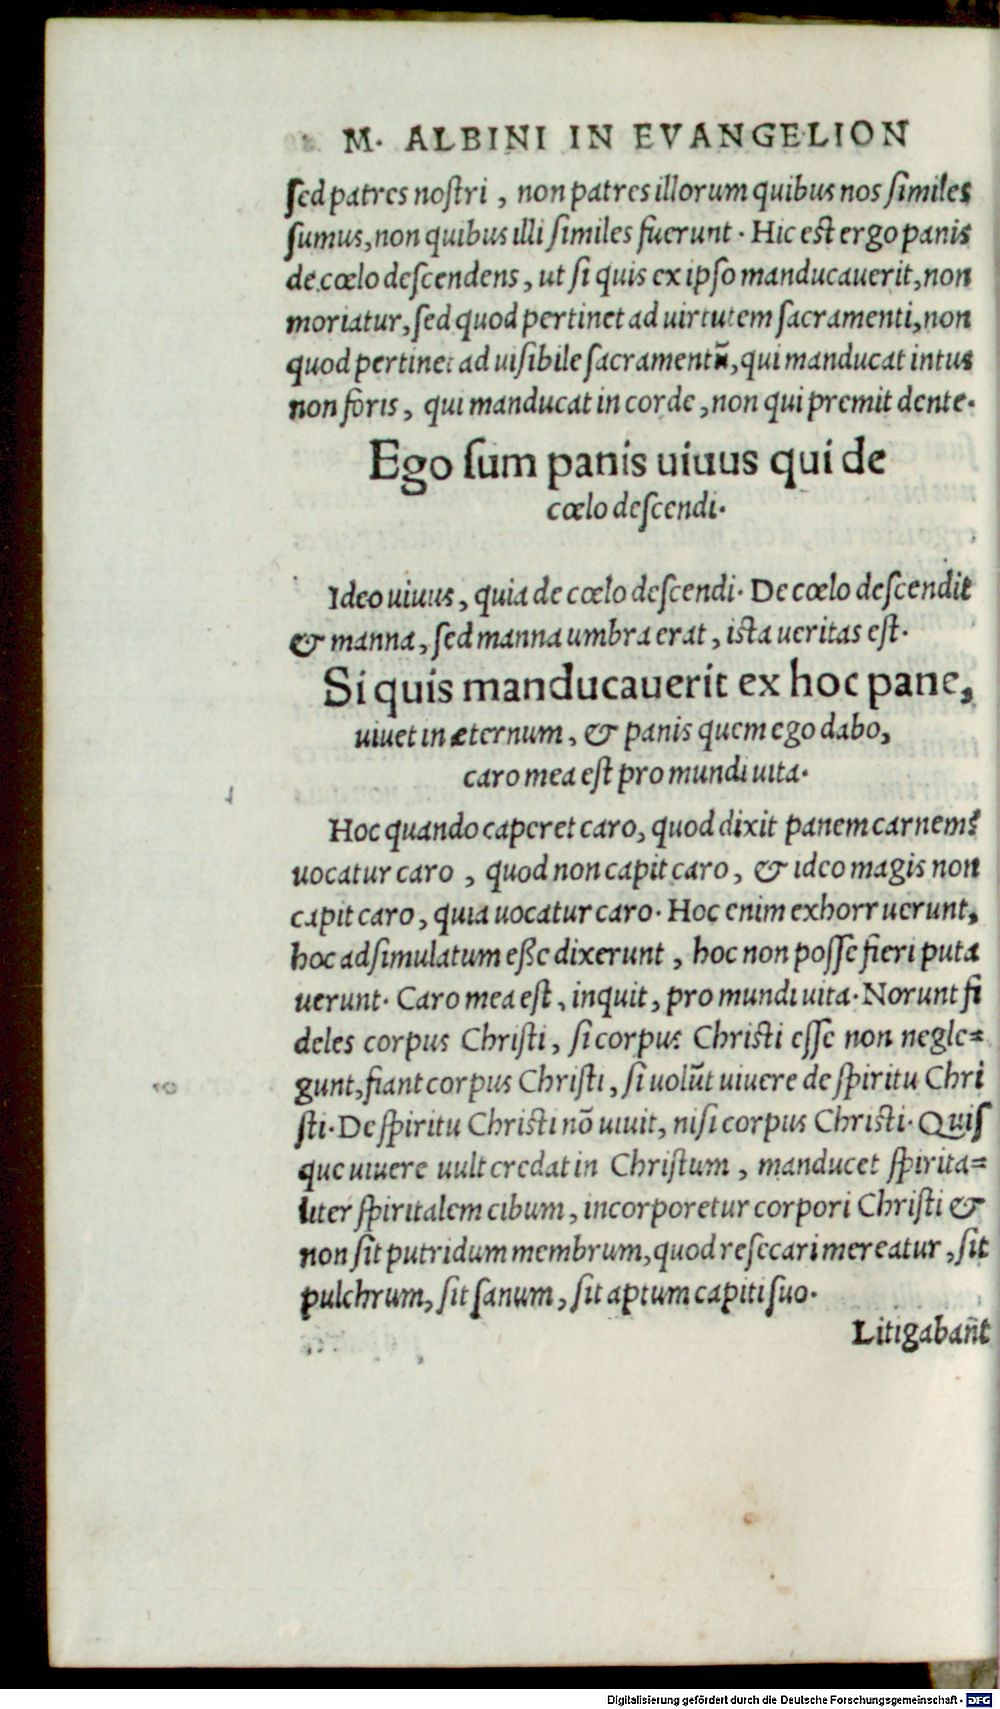 M. ALBINI IN EVANGELION
sed patres nostri, non patres illorum quibus nos similes
sumus, non quibus illi similes fuerunt. Hic est ergo panis
de cœlo descendens, ut si quis ex ipso manducauerit, non
moriatur, sed quod pertinet ad uirtutem sacramenti, non
quod pertinet ad uisibile sacramentũ, qui manducat intus
non foris, qui manducat in corde, non qui premit dente.
Ego sum panis uiuus qui de
cœlo descendi.
Ideo uiuus, quia de cœlo descendi. De cœlo descendit
& manna, sed manna umbra erat, ista ueritas est.
Si quis manducauerit ex hoc pane,
uiuet in æternum, & panis quem ego dabo,
caro mea est pro mundi uita.
Hoc quando caperet caro, quod dixit panem carnem?
uocatur caro, quod non capit caro, & ideo magis non
capit caro, quia uocatur caro. Hoc enim exhorruerunt,
hoc adsimulatum eße dixerunt, hoc non posse fieri puta
uerunt. Caro mea est, inquit, pro mundi uita. Norunt fi
deles corpus Christi, si corpus Christi esse non negle=
gunt, fiant corpus Christi, si uolũt uiuere de spiritu Chri
sti. De spiritu Christi nõ uiuit, nisi corpus Christi. Quis
que uiuere uult credat in Christum, manducet spirita=
liter spiritalem cibum, incorporetur corpori Christi &
non sit putridum membrum, quod resecari mereatur, sit
pulchrum, sit sanum, sit aptum capiti suo.
Litigabañt
Digitalisierung gefördert durch die Deutsche Forschungsgemeinschaft - DFG